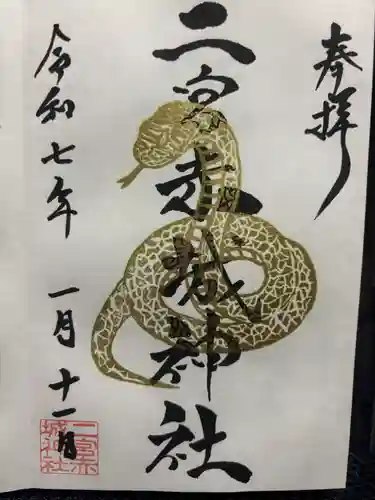 奉拝
二宮赤城神社
令和七年 一月十一日
二宮赤
城神社